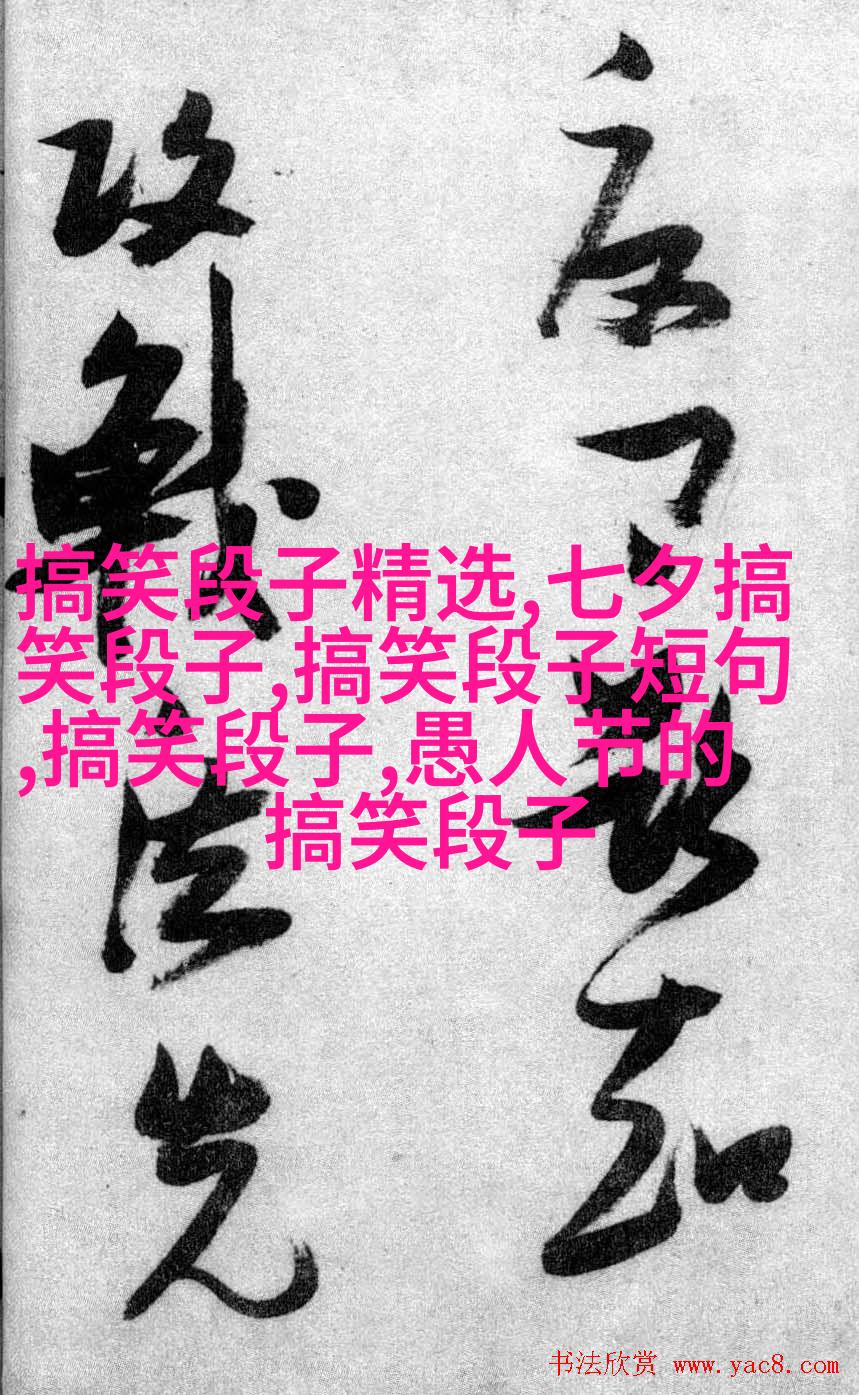 攻戰法先
搞笑段子精选,七夕搞
笑段子,搞笑段子短句
,搞笑段子,愚人节的
搞笑段子
书法欣赏 www.yac8.com